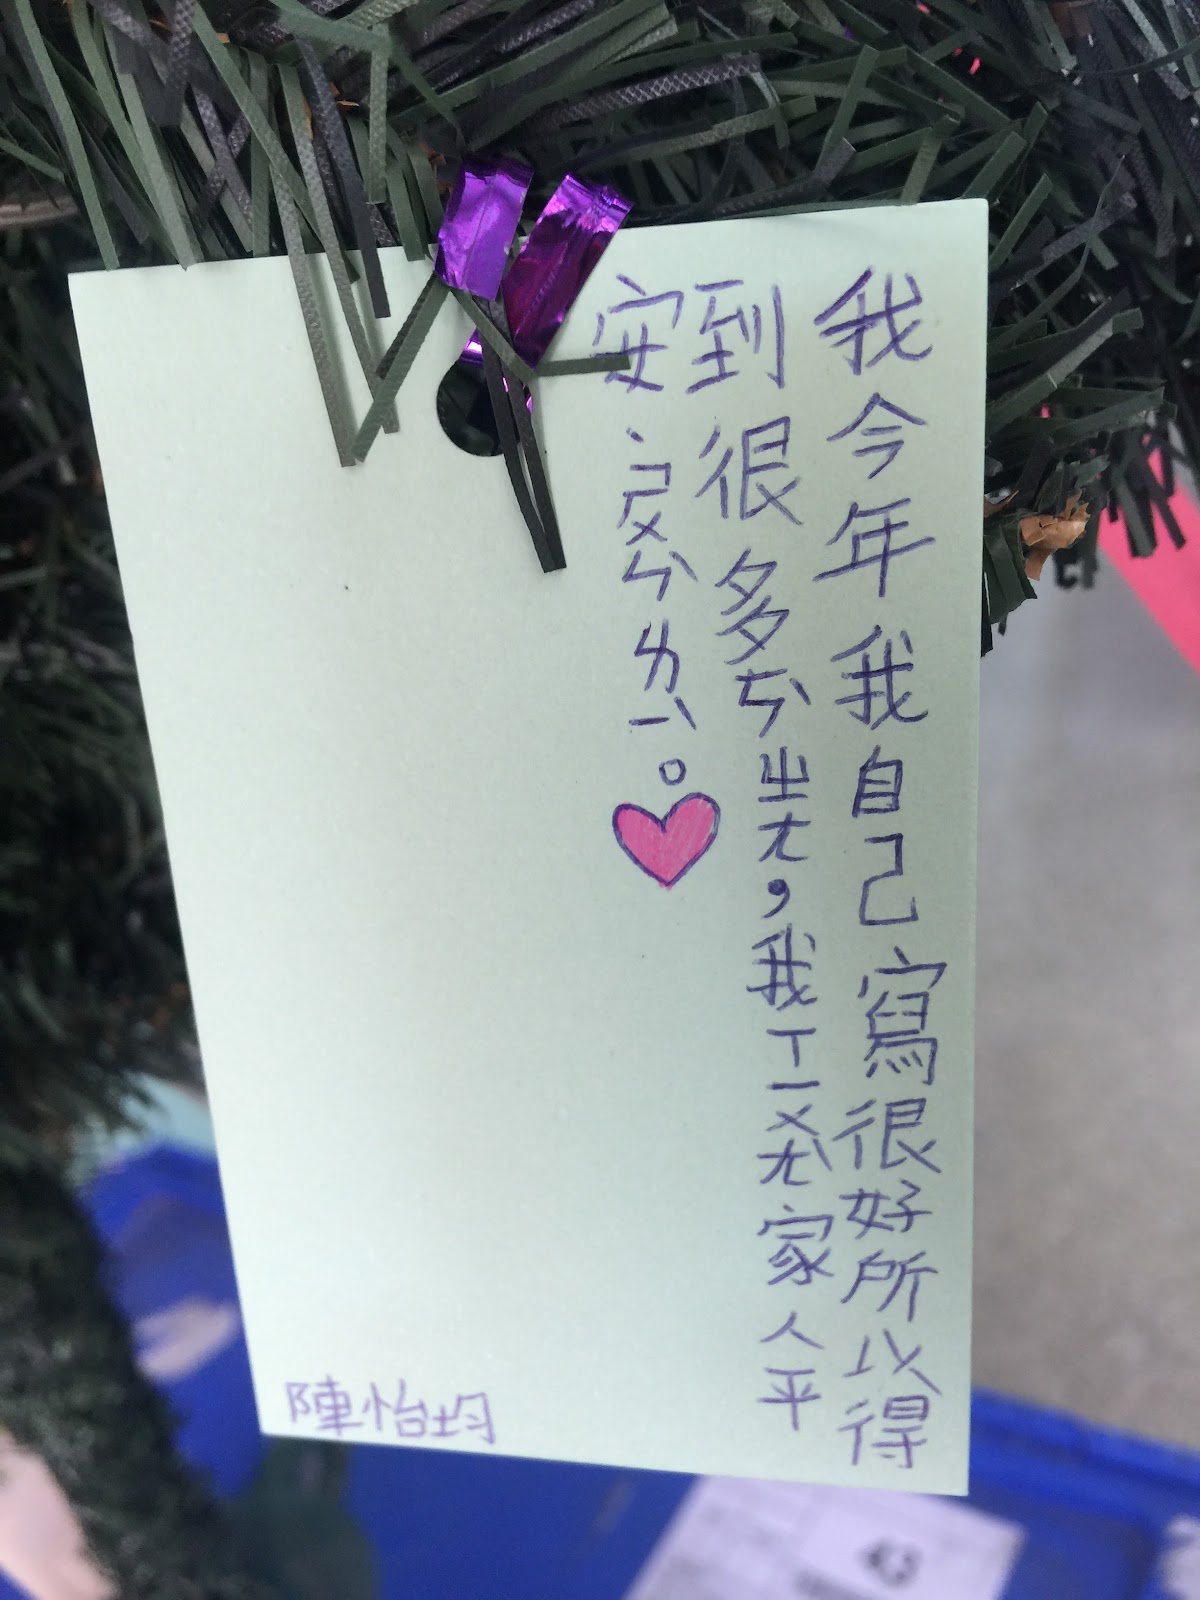 我今年我自己寫很好所以得
到很多ㄧㄣˋㄓㄤ，我ㄒㄧㄨㄤˋ家人平
安、ㄕㄨㄣˋㄌㄧˋ。
陳怡均